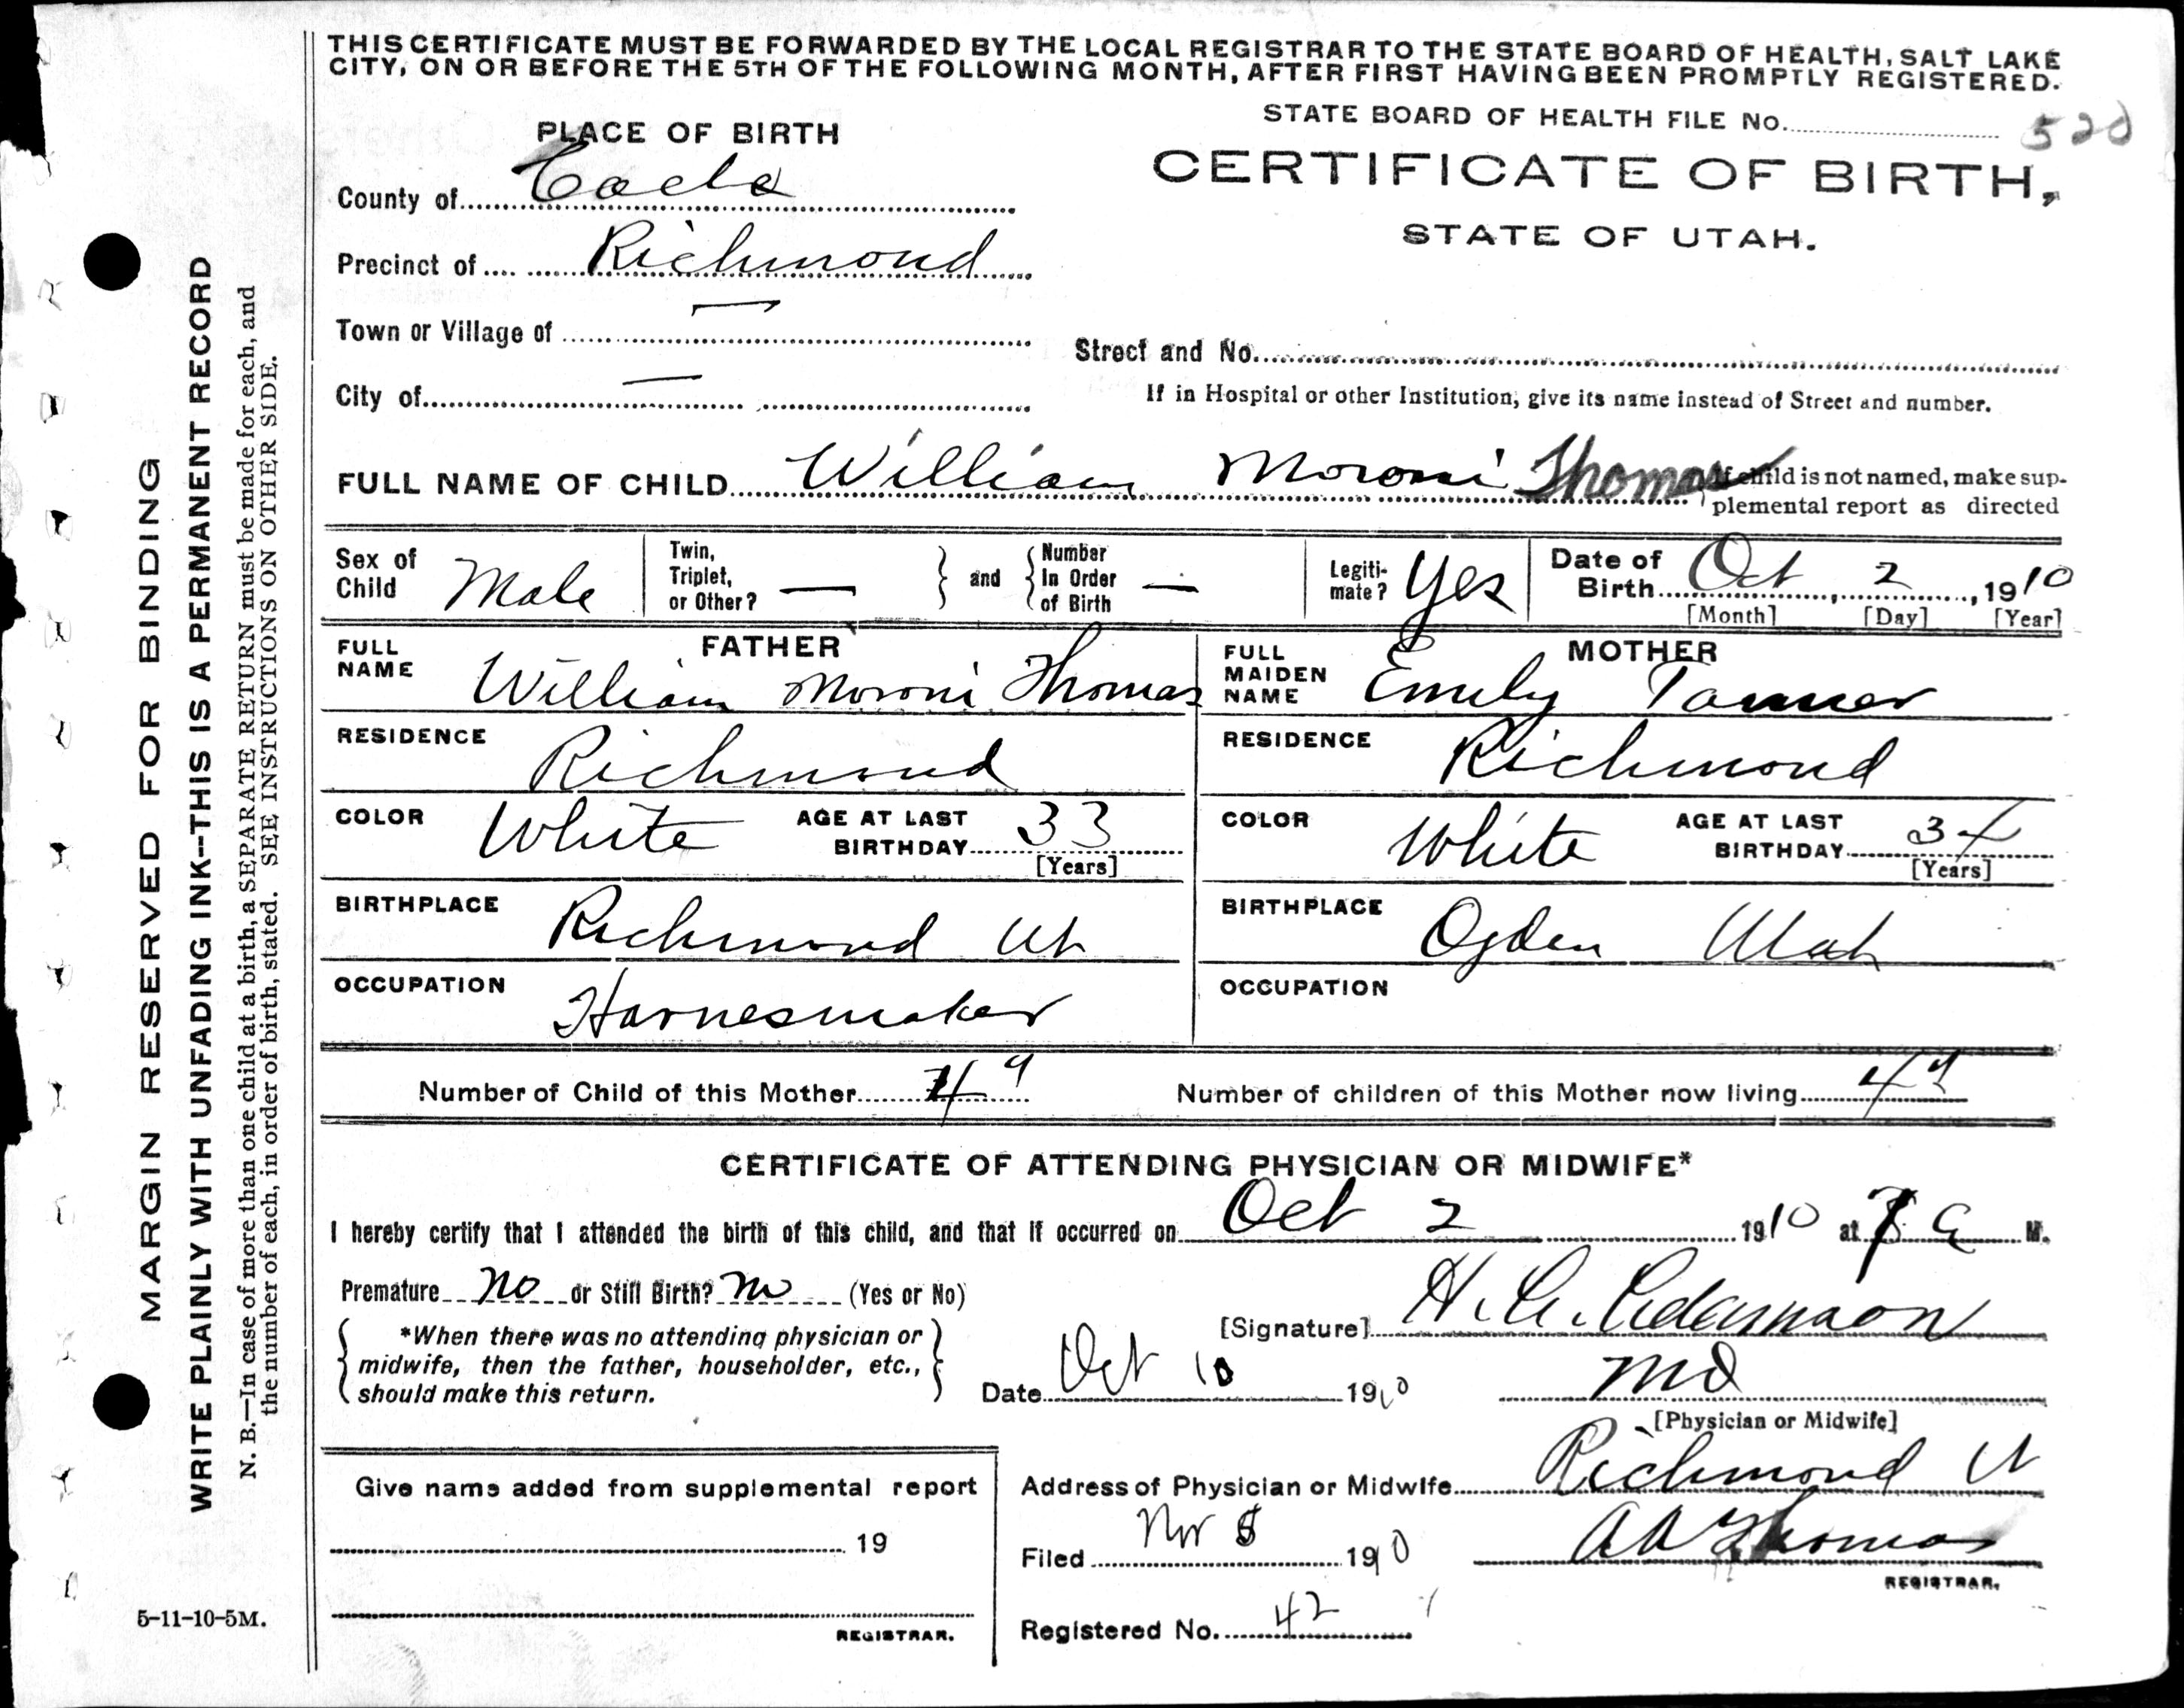 THIS CERTIFICATE MUST BE FORWARDED BY THE LOCAL REGISTRAR TO THE STATE BOARD OF HEALTH, SALT LAKE
CITY, ON OR BEFORE THE 5TH OF THE FOLLOWING MONTH, AFTER FIRST HAVING BEEN PROMPTLY REGISTERED.
STATE BOARD OF HEALTH FILE No. 520
PLACE OF BIRTH
CERTIFICATE OF BIRTH,
STATE OF UTAH.
County of Cache
Precinct of Richmond
Town or Village of —
Street and No.
City of —
If in Hospital or other Institution, give its name instead of Street and number.
FULL NAME OF CHILD William Moroni Thomas
If child is not named, make sup-
plemental report as directed
Sex of Child Male
Twin, Triplet, or Other? —
and Number In Order of Birth —
Legiti-mate? Yes
Date of Birth Oct 2, 1910
[Month] [Day] [Year]
FATHER
FULL NAME William Moroni Thomas
MOTHER
FULL MAIDEN NAME Emily Tanner
RESIDENCE Richmond
RESIDENCE Richmond
COLOR White AGE AT LAST BIRTHDAY 33 [Years]
COLOR White AGE AT LAST BIRTHDAY 34 [Years]
BIRTHPLACE Richmond Ut
BIRTHPLACE Ogden Utah
OCCUPATION Harnesmaker
OCCUPATION
Number of Child of this Mother 4
Number of children of this Mother now living 4
CERTIFICATE OF ATTENDING PHYSICIAN OR MIDWIFE*
I hereby certify that I attended the birth of this child, and that it occurred on Oct 2 1910 at a M.
Premature No or Still Birth? no (Yes or No)
*When there was no attending physician or
midwife, then the father, householder, etc.,
should make this return.
[Signature] Adamson
Date Oct 10 1910
MD
[Physician or Midwife]
Give name added from supplemental report
19
REGISTRAR.
Address of Physician or Midwife Richmond Ut
Filed Nov 5 1910
Thomas
REGISTRAR.
Registered No. 42
MARGIN RESERVED FOR BINDING
WRITE PLAINLY WITH UNFADING INK--THIS IS A PERMANENT RECORD
N. B.—In case of more than one child at a birth, a SEPARATE RETURN must be made for each, and
the number of each, in order of birth, stated. SEE INSTRUCTIONS ON OTHER SIDE.
5-11-10-5M.